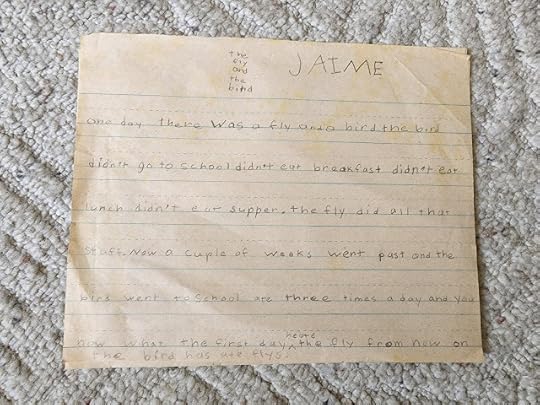 the
fly
and
the
bird
JAIME
one day there was a fly and a bird the bird
didn't go to school didn't eat breakfast didn't eat
lunch didn't eat supper. the fly did all that
staff. Now a cuple of weeks went past and the
bird went to school ate three times a day and you
now what the first day heate the fly from now on
the bird has ate flys.